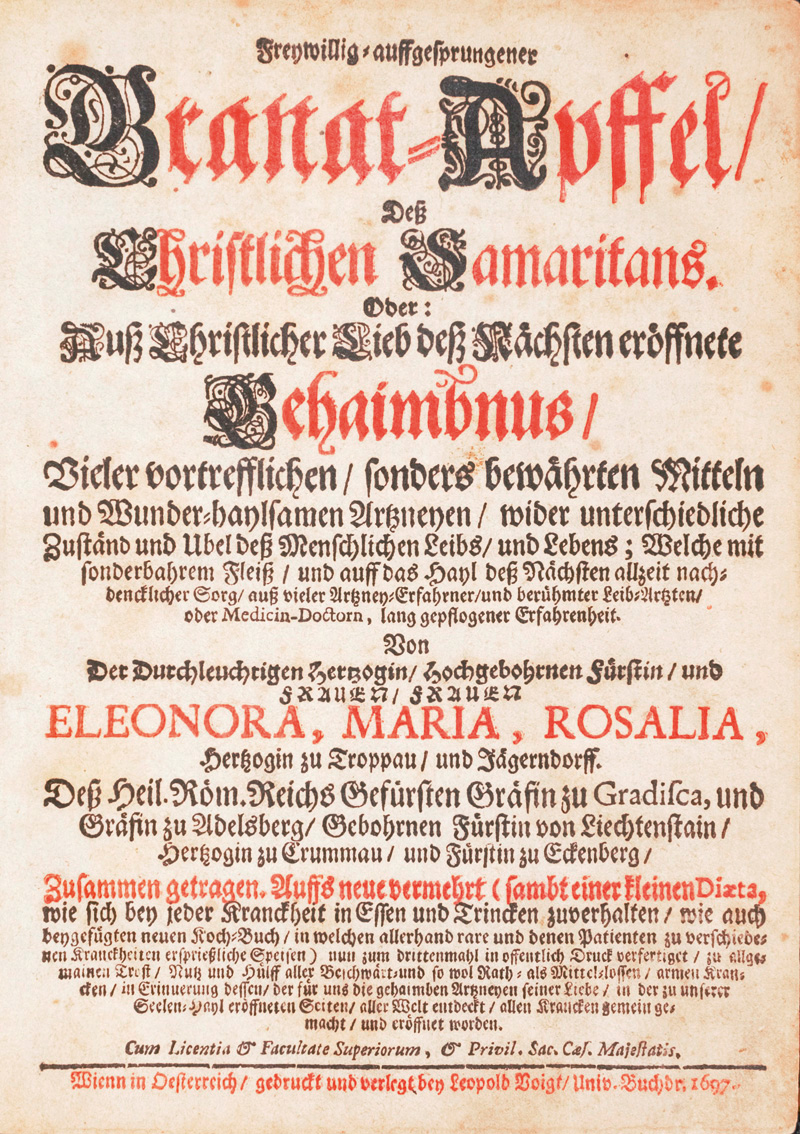 Freywillig-auffgesprungener
Granat-Apffel/
Deß
Christlichen Samaritans.
Oder:
Auß Christlicher Lieb deß Nächsten eröffnete
Gehaimbnus/
Vieler vortrefflichen/ sonders bewährten Mitteln
und Wunder-haylsamen Artzneyen/ wider unterschiedliche
Zuständ und Ubel deß Menschlichen Leibs/ und Lebens; Welche mit
sonderbahrem Fleiß/ und auff das Hayl deß Nächsten allzeit nach-
dencklicher Sorg/ auß vieler Artzney-Erfahrner/ und berühmter Leib-Artzten/
oder Medicin-Doctorn, lang gepflogener Erfahrenheit.
Von
Der Durchleuchtigen Hertzogin/ Hochgebohrnen Fürstin/ und
FRAUEN/ FRAUEN
ELEONORA, MARIA, ROSALIA,
Hertzogin zu Troppau/ und Jägerndorff.
Deß Heil. Röm. Reichs Gefürsten Gräfin zu Gradisca, und
Gräfin zu Adelsberg/ Gebohrnen Fürstin von Liechtenstain/
Hertzogin zu Crummau/ und Fürstin zu Eckenberg/
Zusammen getragen. Auffs neue vermehrt (sambt einer kleinen Diæta,
wie sich bey jeder Kranckheit in Essen und Trincken zuverhalten/ wie auch
beygefügten neuen Koch-Buch/ in welchen allerhand rare und denen Patienten zu verschiede-
nen Kranckheiten ersprießliche Speisen) nun zum drittenmahl in offentlich Druck verfertiget/ zu allge-
mainen Trost/ Nutz und Hülff aller Beschwärt-und so wol Rath- als Mittel-lossen/ armen Kran-
cken/ in Erinnerung dessen/ der für uns die gehaimben Artzneyen seiner Liebe/ in der zu unserer
Seelen-Hayl eröffneten Seiten/ aller Welt entdeckt/ allen Krancken gemein ge-
macht/ und eröffnet worden.
Cum Licentia & Facultate Superiorum, & Privil. Sac. Cæs. Majestatis.
Wienn in Oesterreich/ gedruckt und verlegt bey Leopold Voigt/ Univ. Buchdr. 1697.